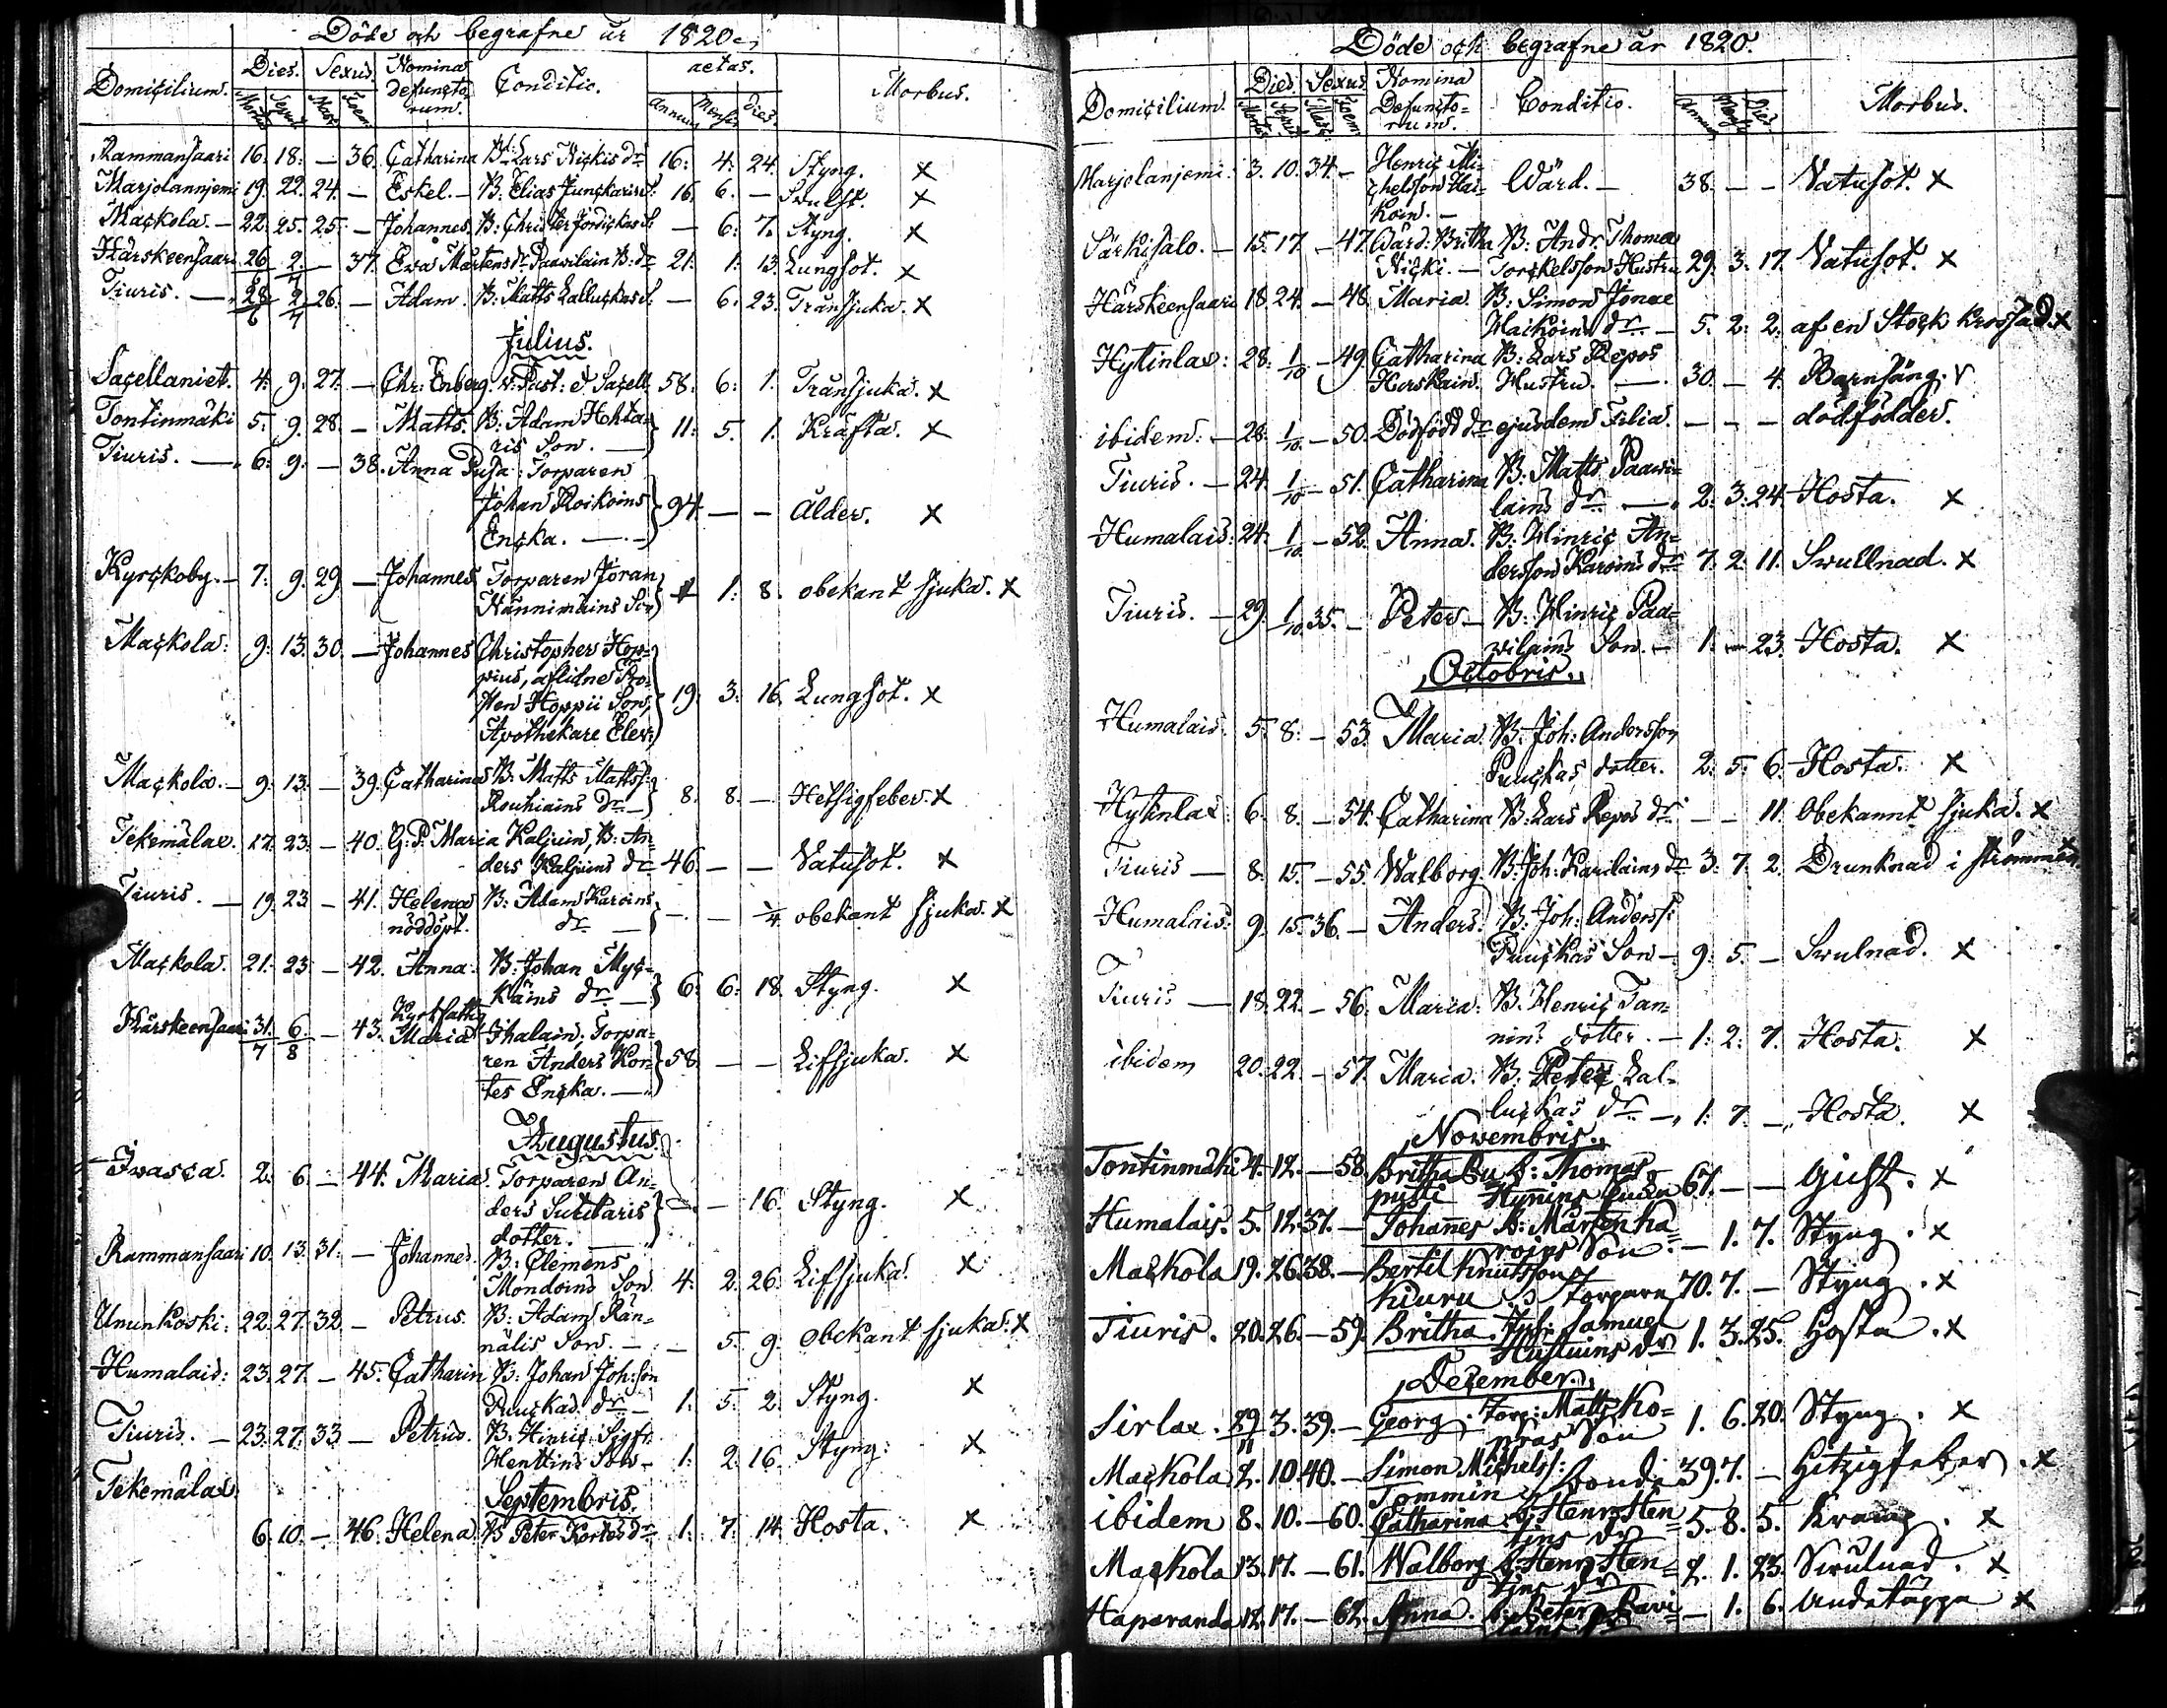 Döde och begrafne år 1820.
Domicilium. Dies. Sexus. Nomina defuncto- Conditio. aetas. Morbus.
Mortus Sepult Masc. Foem. rum. Annus Menses Dies.
Rammansaari 16. 18. — 36. Catharina B: Lars Nickis dr 16. 4. 24. Styng. X
Marjolanniemi 19. 22. 24. — Eskel. — B: Elias Junckaris 16. 6. — Swulst. X
Mackola. — 22. 25. 25. — Johannes. B: Christer S. — 6. 7. Styng. X
Härskeensaari 26/6 2/7 — 37. Eva Mårtens dr Paavilain B: dr 21. 1. 13. Lungsot. X
Tiuris. — 28/6 2/7 26. — Adam. B: Matts Lalluckas S. — 6. 23. Trånsjuka. X
Julius.
Sacellaniet. 4. 9. 27. — Chr: Enberg. v. Past: et Sacell. 58. 6. 1. Trånsjuka. X
Tontinmäki 5. 9. 28. — Matts. B: Adam Hohta-
ris Son. — 11. 5. 1. Kräfta. X
Tiuris. — 6. 9. — 38. Anna Pusa: Torparen
Johan Roikoins 94. — — Ålder. X
Encka. —
Kyrckoby. — 7. 9. 29. — Johannes Torparen Joran
Hännimäins Son 1. 8. obekant sjuka. X
Mackola: 9. 13. 30. — Johannes Christopher Hop-
pius, aflidne Pro-
sten Hoppii Son, 19. 3. 16. Lungsot. X
Apothekare Elev.
Mackola. — 9. 13. — 39. Catharina B: Matts Mattss:
Rouhiains dr — 8. 8. — Hetsigfeber. X
Tekemälae. 17. 23. — 40. G: P. Maria Kaljuin, B: An-
ders Kaljuins dr 46. — — Vatusot. X
Tiuris. — 19. 23 — 41. Helena B: Adam Karoins
nöddöpt. dr — — — 1/4 obekant sjuka. X
Mackola. 21. 23 — 42. Anna. B: Johan Myc-
käins dr — 6. 6. 18. Styng. X
Härskeensaari 31/7 6/8 — 43. Maria Ihalain, Torpa-
ren Anders Kon- 58. — — Lifsjuka. X
tes Encka. —
Augustus.
Ivasca. 2. 6. — 44. Maria. Torparen An-
ders Sutitaris — — 16. Styng. X
dotter.
Rammansaari 10. 13. 31. — Johannes. B: Clemens
Mondoins Son 4. 2. 26. Lifsjuka. X
Ununkoski: 22. 27. 32. — Petrus. B: Adam Rän-
nälis Son. — — 5. 9. obekant sjuka. X
Humalais: 23. 27. — 45. Catharin B: Johan Joh:son
Puuckas dr — 1. 5. 2. Styng. X
Tiuris. — 23. 27. 33 — Petrus. B. Hinric Sigfr:
Henttins Son — 1. 2. 16. Styng: X
Tekemälae.
Septembris.
6. 10. — 46. Helena B Peter Kortes dr 1. 7. 14. Hosta. X
Döde och begrafne år 1820.
Domicilium. Dies Sexus Nomina Conditio. Morbus.
Mortus Sepult Masc Foem. Defuncto- Annus Menses Dies
rum.
Marjolanjemi: 3. 10. 34. — Henric Mi-
chelsson Hai- Wärd. — 38. — — Vatusot. X
koin. —
Särkisalo. — 15. 17. — 47. Wärd: Britha B: Andr. Thomae
Nicki. — Torckelsson Hustru 29. 3. 17. Vatusot. X
Härskeensaari 18. 24. — 48. Maria. B: Simon Jonae
Haikoins dr. — 5. 2. 2. af en Stock krossad. X
Hytinlax: 28. 1/10 — 49. Catharina B: Lars Repos
Hurskain. Hustru. — 30. — 4. Barnsäng.
ibidem. — 28. 1/10 — 50. Dödfödd dr ejusdem Filia. — — — dödfödder.
Tiuris. — 24. 1/10 — 51. Catharina B: Matts Paavi-
lains dr — 2. 3. 24. Hosta. X
Humalais: 24. 1/10 — 52. Anna. B: Hinric An-
dersson Karoins dr 7. 2. 11. Swullnad. X
Tiuris. — 29. 1/10. 35. — Peter — B: Hinric Paa-
vilains Son. — 1. — 23. Hosta. X
Octobris.
Humalais. 5. 8. — 53. Maria. B: Joh: Andersson
Puuckas dotter. 2. 5. 6. Hosta. X
Hytinlax: 6. 8. — 54. Catharina B: Lars Repos dr — — 11. Obekannt sjuka. X
Tiuris — 8. 15. — 55. Walborg. B: Joh: Karilains dr 3. 7. 2. Drunknad i strömmen
Humalais: 9. 15. 36. — Anders. B: Joh: Anderss:
Puuckas Son — 9. 5. — Swulnad. X
Tiuris — 18. 22. — 56. Maria: B. Henric Tan-
nin: dotter. — 1. 2. 7. Hosta. X
ibidem 20. 22. — 57. Maria. B: Peter Lal-
luckas dr. — 1. 7. — Hosta. X
Novembris.
Tontinmäki 4. 12. — 58. Britha B: Thomas
Hynnins 67. — — Gicht. X
Humalais. 5. 12. 37. — Johannes B: Mårten Ka-
roins Son. — 1. 7. Styng. X
Mackola 19. 26. 38. — Bertil Knutsson
Kiuru Torpare 70. 7. — Styng. X
Tiuris. 20. 26. — 59. Britha. Samuel
dr 1. 3. 25. Hosta. X
December.
Sirlax. 29/11 3. 39. — Georg. Torp: Matts Ko-
pras Son 1. 6. 20. Styng. X
Mackola 2. 10. 40. — Simon Michelss:
Tommin Bonde 39. 7. — Hetzigfeber. X
ibidem 8. 10. — 60. Catharina B: Henr. Hen-
tins dr 5. 8. 5. X
Mackola 13. 17. — 61. Walborg B: Henr. Hen-
tins dr 2. 1. 23. Swulnad. X
Haparanda 12. 17. — 62. Anna. B: Peter Pavi- — 1. 6. Andetäppa X
lains dr